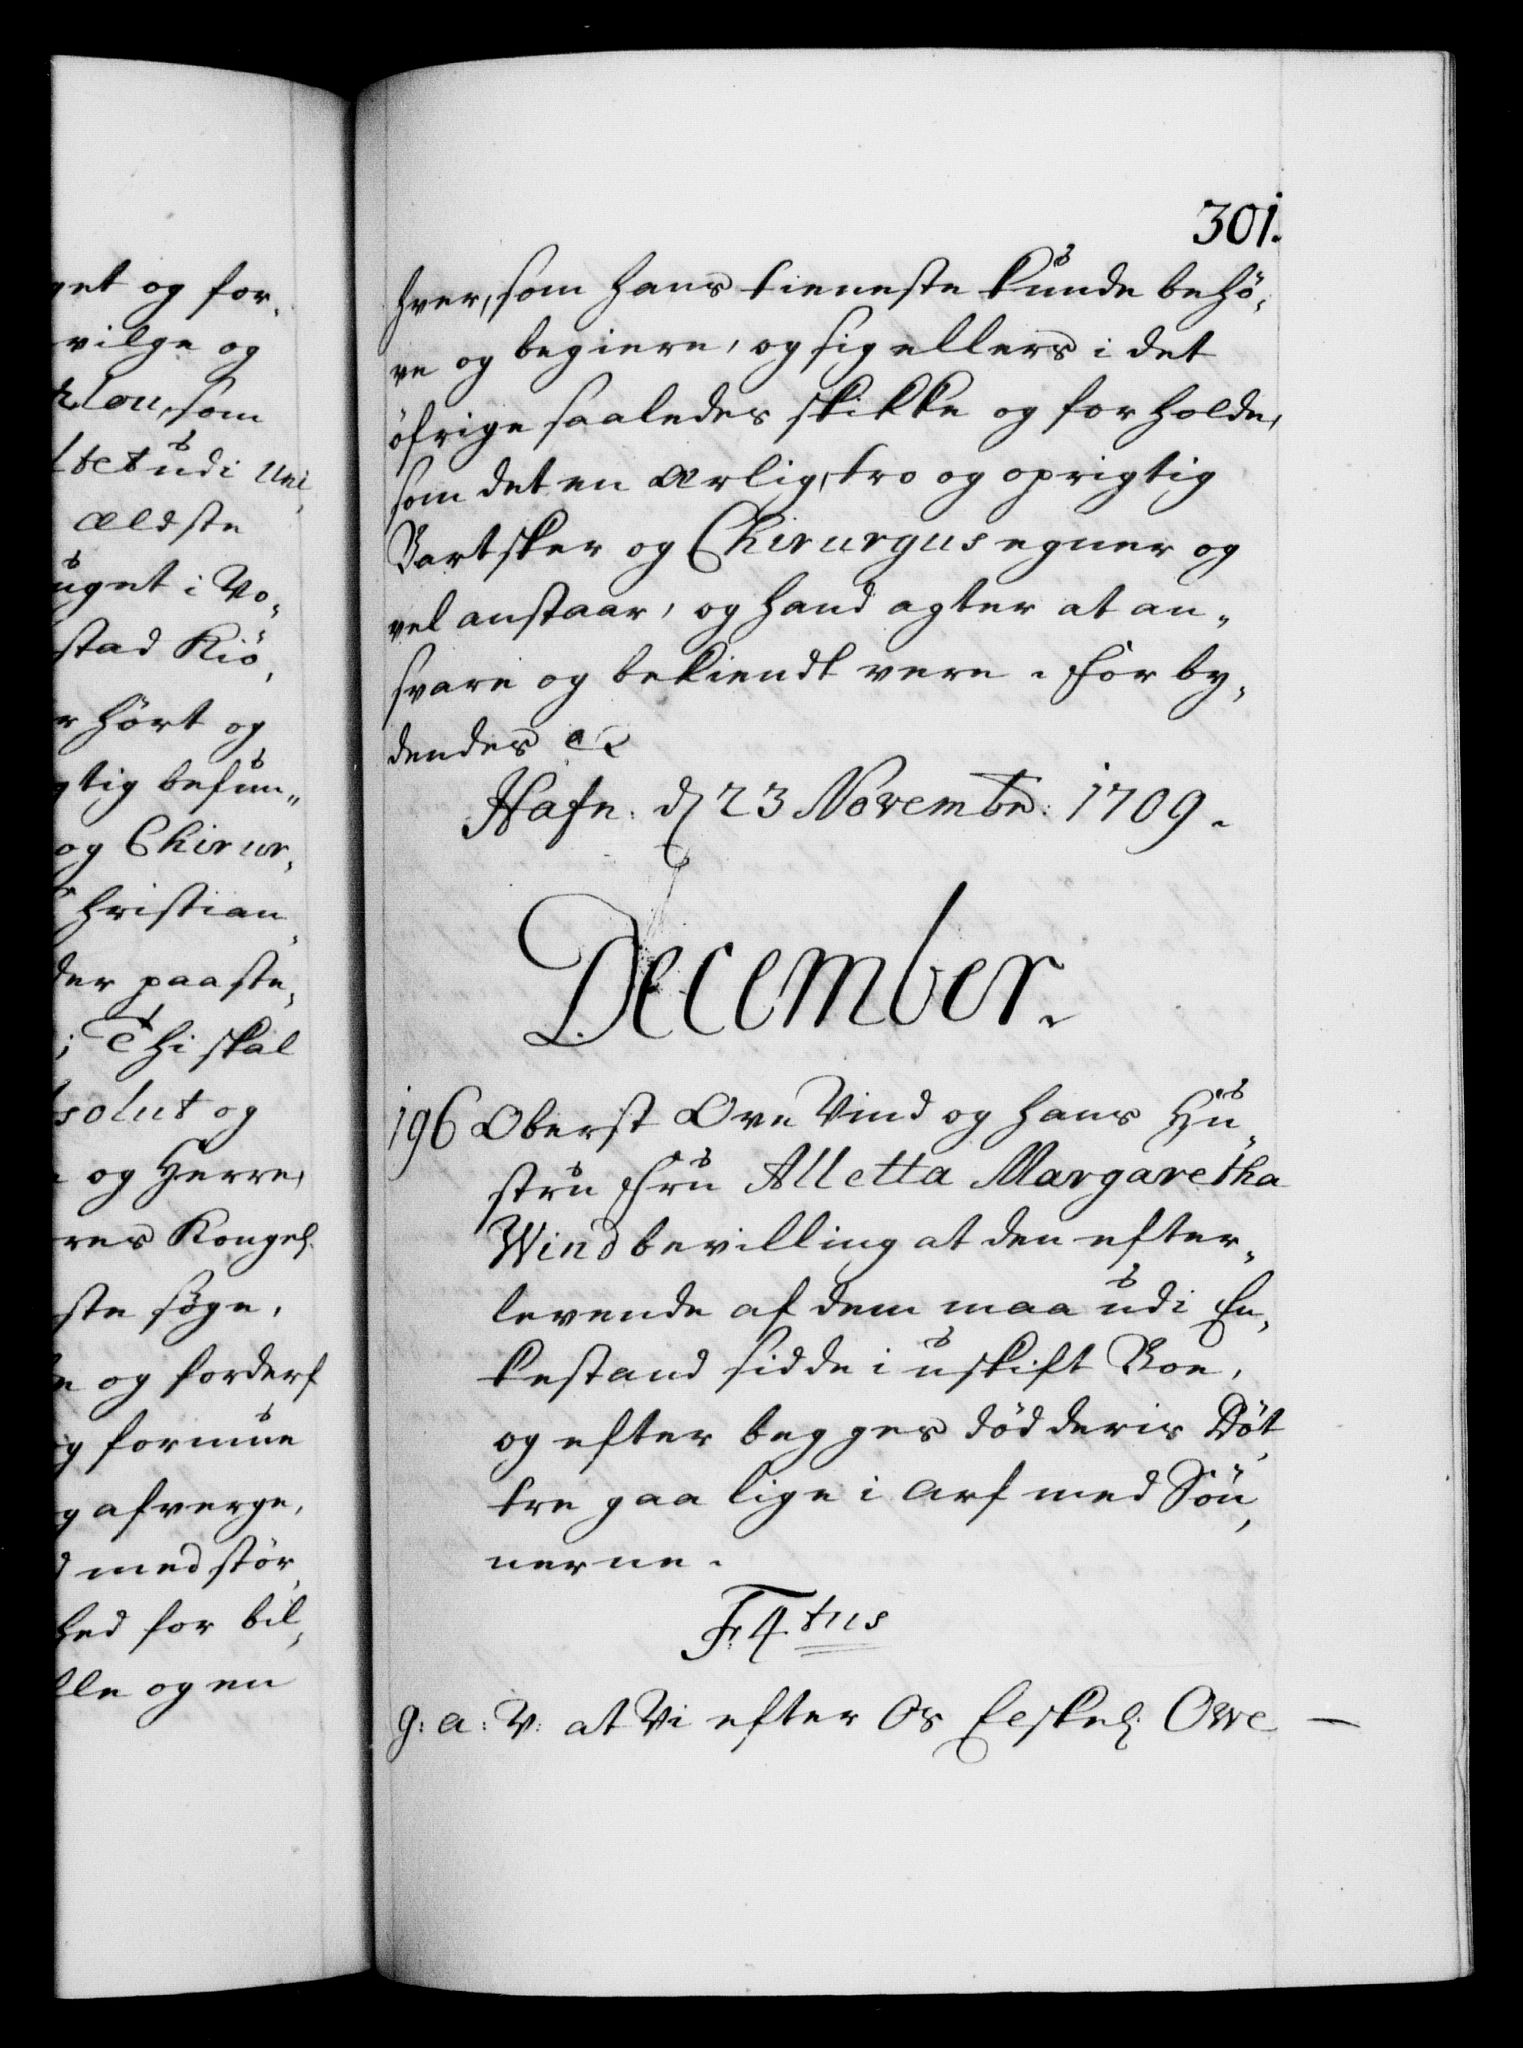 get og for-
vilge og
som
udi Uni-
ældste
uget i Vo-
stad Kiö-
r hört og
gtig befun-
og Chirur-
hristian
der paaste-
; Thi skal
solut og
og Herre,
res Kongel.
ste søge,
og forderf
g formue
g afverge,
d med stör-
hed for bil-
lle og en
301.
hver, som hans tieneste kunde behö-
ve og begiere, og sig ellers i det
öfrige saaledes skikke og forholde,
som det en ærlig, tro og oprigtig
Bartsker og Chirurgus egner og
vel anstaar, og hand agter at an-
svare og bekiendt vere. Forby-
dendes etc
Hafn. d. 23 Novembr: 1709.
December.
196 Oberst Ove Vind og hans Hu-
stru Fru Alletta Margaretha
Wind bevilling at den efter-
levende af dem maa udi En-
kestand sidde i uskift Boe,
og efter begges död deris Döt-
tre gaa lige i Arf med Sön-
nerne.
F: 4.tus
G: a: V: at Vi efter Os Elskel. Owe —